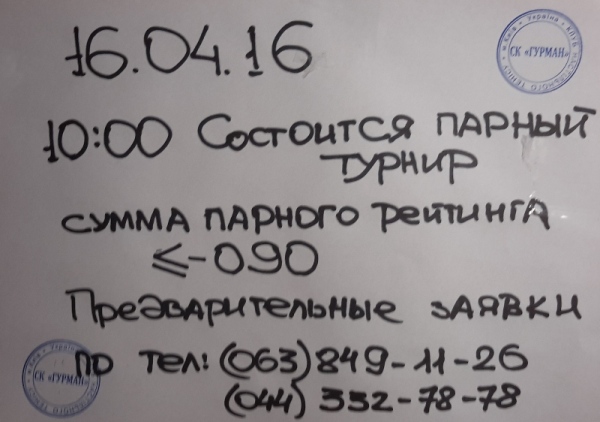 16.04.16
СК «ГУРМАН»
10:00 Состоится ПАРНЫЙ
ТУРНИР
СУММА ПАРНОГО РЕЙТИНГА
≤-090
Предварительные ЗАЯВКИ
ПО ТЕЛ: (063) 849-11-26
(044) 332-78-78
СК «ГУРМАН»